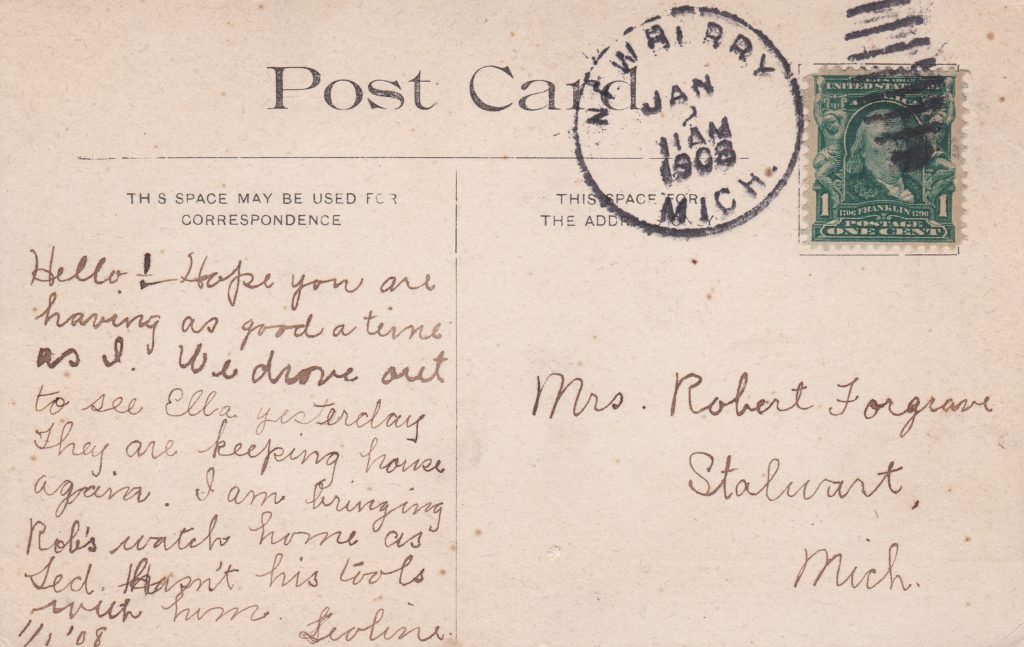 Post Card
NEWBERRY
JAN
2
11 AM
1908
MICH.
UNITED STATES
1706 FRANKLIN 1790
1 1
POSTAGE
ONE CENT
THIS SPACE MAY BE USED FOR
CORRESPONDENCE
THIS SPACE FOR
THE ADDR
Hello! - Hope you are
having as good a time
as I. We drove out
to see Ella yesterday
They are keeping house
again. I am bringing
Rob's watch home as
Led. hasn't his tools
with him.
1/1 '08 Leoline.
Mrs. Robert Forgrave
Stalwart,
Mich.